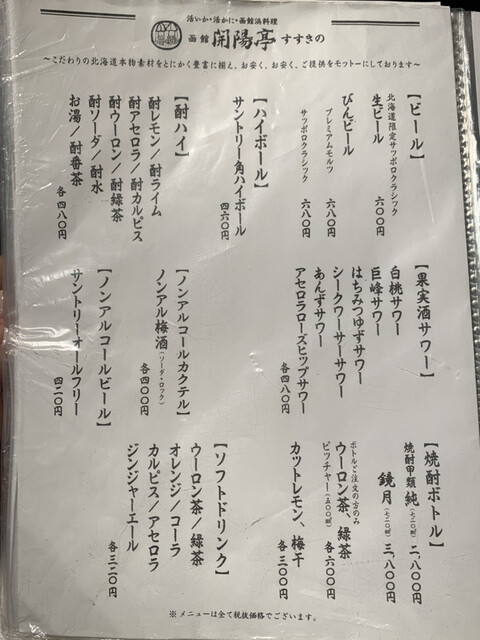 活いか・活かに・函館浜料理
函館 開陽亭 すすきの
～こだわりの北海道本物素材をとにかく豊富に揃え、お安く、お安く、ご提供をモットーにしております～
【ビール】
北海道限定サッポロクラシック
生ビール 六〇〇円
びんビール
プレミアムモルツ 六八〇円
サッポロクラシック 六八〇円
【ハイボール】
サントリー角ハイボール
四六〇円
【酎ハイ】
酎レモン／酎ライム
酎アセロラ／酎カルピス
酎ウーロン／酎緑茶
酎ソーダ／酎水
お湯／酎番茶
各 四八〇円
【果実酒サワー】
白桃サワー
巨峰サワー
はちみつゆずサワー
シークワーサーサワー
あんずサワー
アセロラローズヒップサワー
各 四八〇円
【ノンアルコールカクテル】
ノンアル梅酒（ソーダ・ロック）
各 四〇〇円
【ノンアルコールビール】
サントリーオールフリー
四二〇円
【焼酎ボトル】
焼酎甲類 純（七二〇㎖） 二、八〇〇円
鏡月（七二〇㎖） 三、八〇〇円
ボトルご注文の方のみ
ウーロン茶、緑茶
ピッチャー（五〇〇㎖） 各 六〇〇円
カットレモン、梅干
各 三〇〇円
【ソフトドリンク】
ウーロン茶／緑茶
オレンジ／コーラ
カルピス／アセロラ
ジンジャーエール
各 三二〇円
※メニューは全て税抜価格でございます。